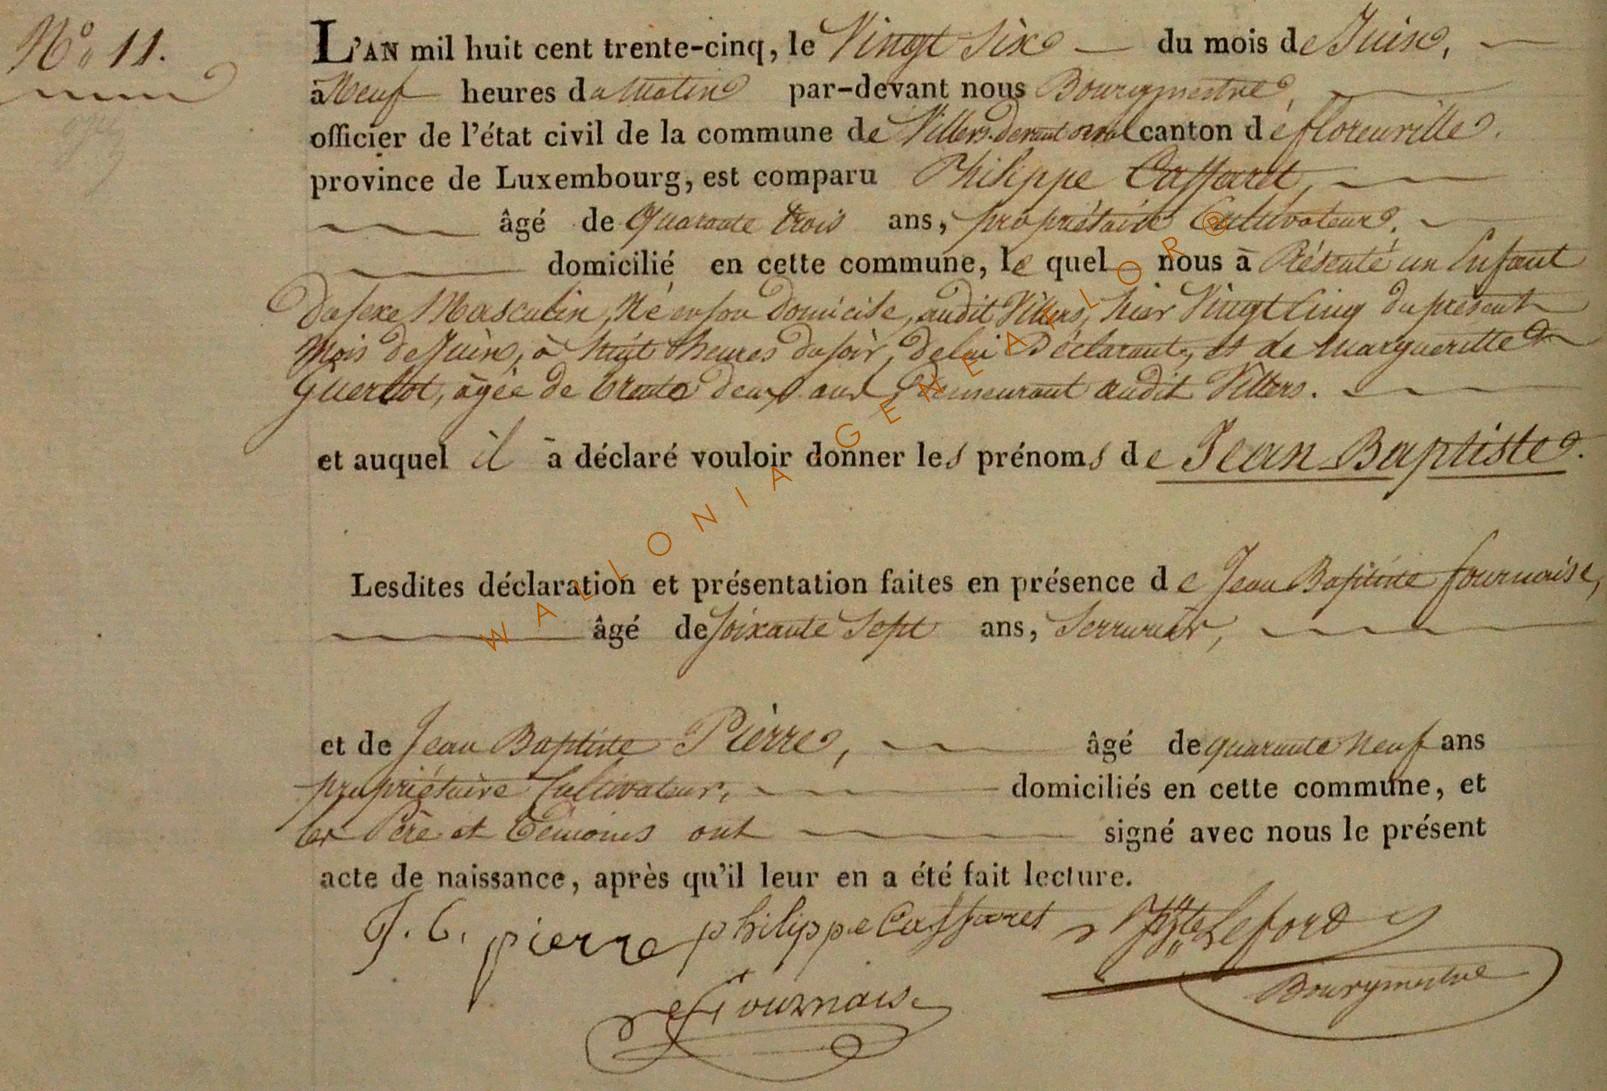 N° 11.
L'AN mil huit cent trente-cinq, le Vingt Six du mois de Juin,
à Neuf heures du Matin par-devant nous Bourgmestre,
officier de l'état civil de la commune de Villers devant orval canton de florenville.
province de Luxembourg, est comparu Philippe Caffaret,
âgé de Quarante trois ans, propriétaire Cultivateur,
domicilié en cette commune, le quel nous à Présenté un Enfant
du sexe Masculin, Né en son Domicile, audit Villers, hier Vingt Cinq du présent
Mois de Juin, à huit heures du soir, de lui Déclarant, et de Margueritte
Guerlot, agée de trente deux ans, Demeurant audit Villers.
et auquel il à déclaré vouloir donner les prénoms de Jean Baptiste.
Lesdites déclaration et présentation faites en présence de Jean Baptiste fournaise,
âgé de Soixante Sept ans, Serrurier,
et de Jean Baptiste Pierre, âgé de quarante Neuf ans
propriétaire Cultivateur, domiciliés en cette commune, et
les Père et Témoins ont signé avec nous le présent
acte de naissance, après qu'il leur en a été fait lecture.
J. B. pierre philippe Caffaret Leford
fournaise Bourgmestre
WALLONIA GENEALOR®